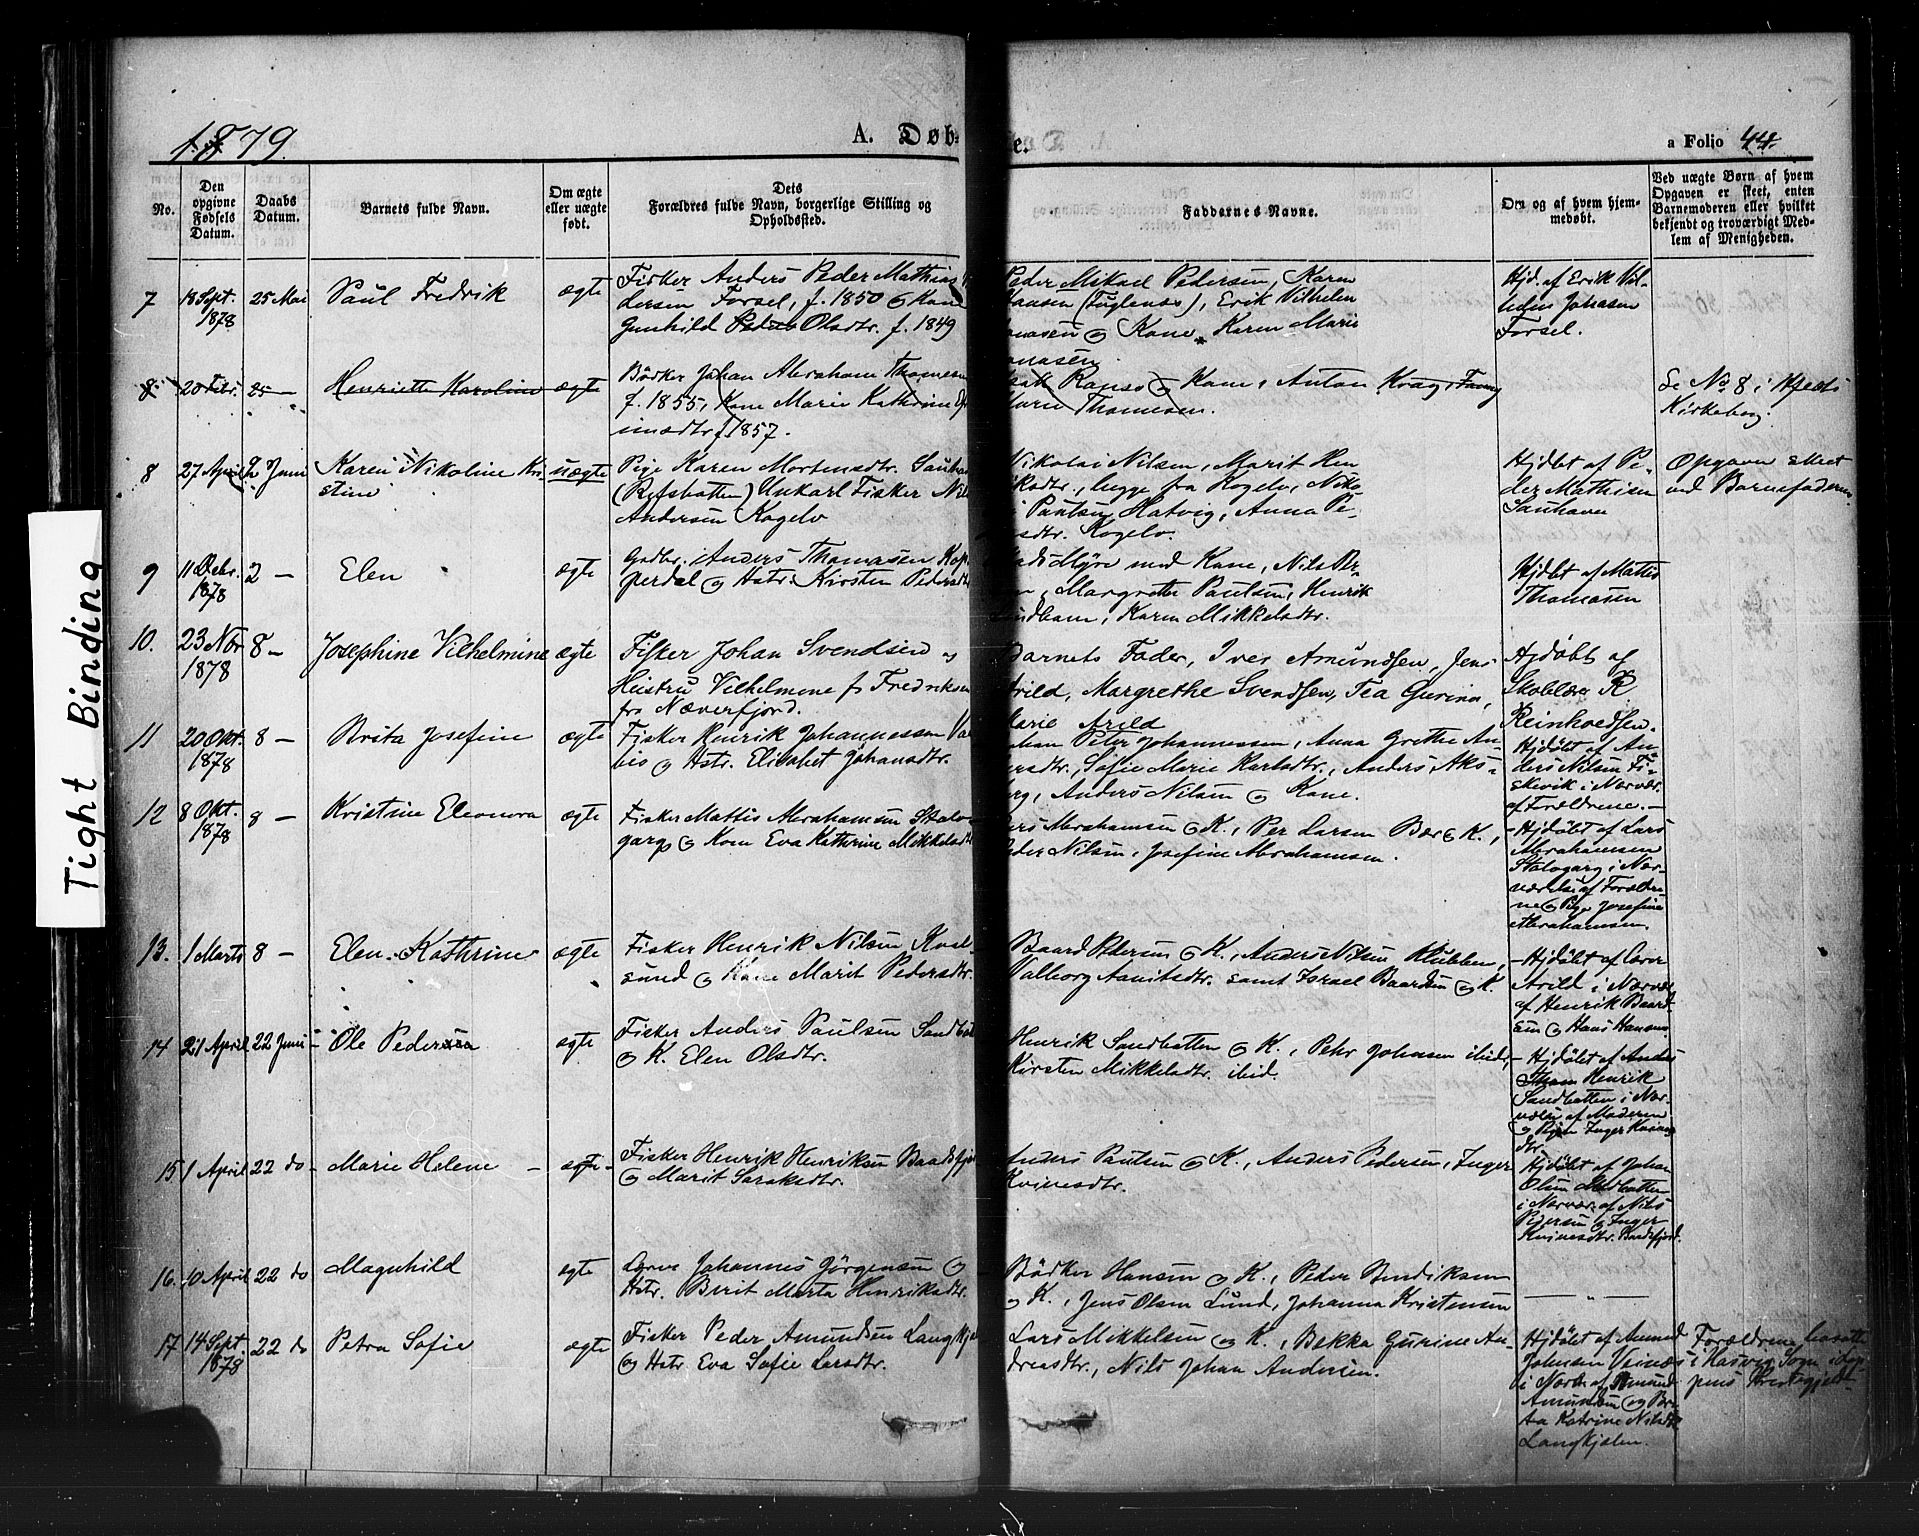 1879.
A. Døb-
te.
a Folio 44.
No.
Den opgivne Fødsels Datum.
Daabs Datum.
Barnets fulde Navn.
Om ægte eller uægte født.
Dets Forældres fulde Navn, borgerlige Stilling og Opholdssted.
Faddernes Navne.
Om og af hvem hjemmedøbt.
Ved uægte Børn af hvem Opgaven er skeet, enten Barnemoderen eller hvilket bekjendt og troværdigt Medlem af Menigheden.
Tight Binding
7 18 Sept. 1878 25 Mai Paul Fredrik ægte
Fisker Anders Peder Mathias
dersen Forsel, f. 1850 og Kone
Gunhild Olsdtr. f. 1849
Peder Mikael Pedersen, Karen
Hansen (Fuglenes), Erik Vilhelm
nasen og Kone, Karen Marie
onasen
Hjd. af Erik Vil-
helm Johasen
Forsel.
8 20 Febr. 25 — Henriette Karoline ægte
Bødker Johan Abraham Thomesen
f. 1855, Kone Marie Kathrine
imsdtr f. 1857.
Ranso og Kone, Anton Krag, Fanny
Marie Thomesen.
Se No 8 i
Kirkebog.
8 27 April 2 Juni Karen Nikoline Kri-
stine uægte
Pige Karen Mortensdtr. Sauhavn
(Refsbotten) Unkarl Fisker Nils
Andersen Kogelv
Nikolai Nilsen, Marit Hen
iksdtr., begge fra Kogelv, Niko
i Paulsen Hatvig, Anna Pe-
rsdtr. Kogelv.
Hjdbt af Pe-
der Mathisen
Sauhavn
Opgaven skeet
ved Barnefaderen
9 11 Debr. 1878 2 — Elen ægte
Gadbr. Anders Thomasen Kop
perdal og Hstr. Kirsten Pedersdtr
Myre med Kone, Nils Pe-
n, Margrethe Paulsen, Henrik
Karen Mikkelsdtr.
Hjdbt af Mattis
Thomasen
10. 23 Nov 1878 8 — Josephine Vilhelmine ægte
Fisker Johan Svendsen og
Hustru Vilhelmine f. Fredriksen
fra Næverfjord.
Barnets Fader, Iver Amundsen, Jens
Arild, Margrethe Svendsen, Tea Gurina,
Marie Arild
Hjdøbt af
Skolelær. R
Reinholdsen.
11 20 Okt. 1878 8 — Brita Josefine ægte
Fisker Henrik Johannessen Val
bis og Hstr. Elisabet Johansdtr.
ohan Peter Johannessen, Anna Grethe An-
ersdtr., Sofie Marie Karlsdtr., Anders Aks-
rg, Anders Nilsen og Kone.
Hjdøbt af An-
ders Nilsen Fi-
skevik i Nærvær.
af Forældrene. —
12 8 Okt. 1878 8 — Kristine Eleonora ægte
Fisker Mattis Abrahamsen Stalo-
garg og Kone Eva Kathrine Mikkelsdtr
ars Abrahamsen og K., Per Larsen Bær og K.,
Peder Nilsen, Josefine Abrahamsen.
- Hjdøbt af Lars
Abrahamsen
Stalogarg i Nær-
værelse af Forældre-
ne og Pige Josefine
Abrahamsen.
13. 1 Marts 8 — Elen Kathrine ægte
Fisker Henrik Nilsen Kval-
sund og Kone Marit Pedersdtr.
Baard Pedersen og K., Anders Nilsen Klubben,
Valborg Aanitsdtr. samt Israel Baardsen og K.
- Hjdøbt af Iver
Arild i Nærvær
af Henrik Baard-
sen og Hans Hansen
14 21 April 22 Juni Ole Peder ægte
Fisker Anders Paulsen Sandbot
og K. Elen Olsdtr.
Henrik Sandbotten og K., Pehr Johnsen ibid.,
Kirsten Mikkelsdtr. ibid.
- Hjdøbt af Anders
Thom Henrik
Sandbotten i Nær-
værelse af Moderen
og Pigen Inger
dtr.
15 1 April 22 do - Marie Helene — ægte -
Fisker Henrik Henriksen Baadsfjor
og Marit Saraksdtr.
Anders Paulsen og K., Anders Pedersen, Inger
Kvinesdtr.
Hjdøbt af Johan
Olsen Midbotten
i Nærvær. af Nils
Pedersen og Inger
Kvinesdtr. Bardsfjord.
16. 10 April 22 do Magnhild ægte
Johannes Jørgensen og
Hstr. Berit Marta Henriksdtr.
Bødker Hansen og K., Peder Bendiksen
og K., Jens Olsen Lund, Johanna Kristensen
— „ —
17 14 Sept. 1878 22 do Petra Sofie ægte
Fisker Peder Amundsen Langkjel
og Hstr. Eva Sofie Larsdtr.
Lars Mikkelsen og K., Bekka Gurine An-
dreasdtr., Nils Johan Andersen.
Hjdøbt af Amund
Johnsen Veines
i Nærv. af Amund
Amundsen og Be-
ta Katrine Nilsdtr
Langkjelen.
Forældrene bosatte
i Hasvig Sogn i Lop
pens Præstegjeld